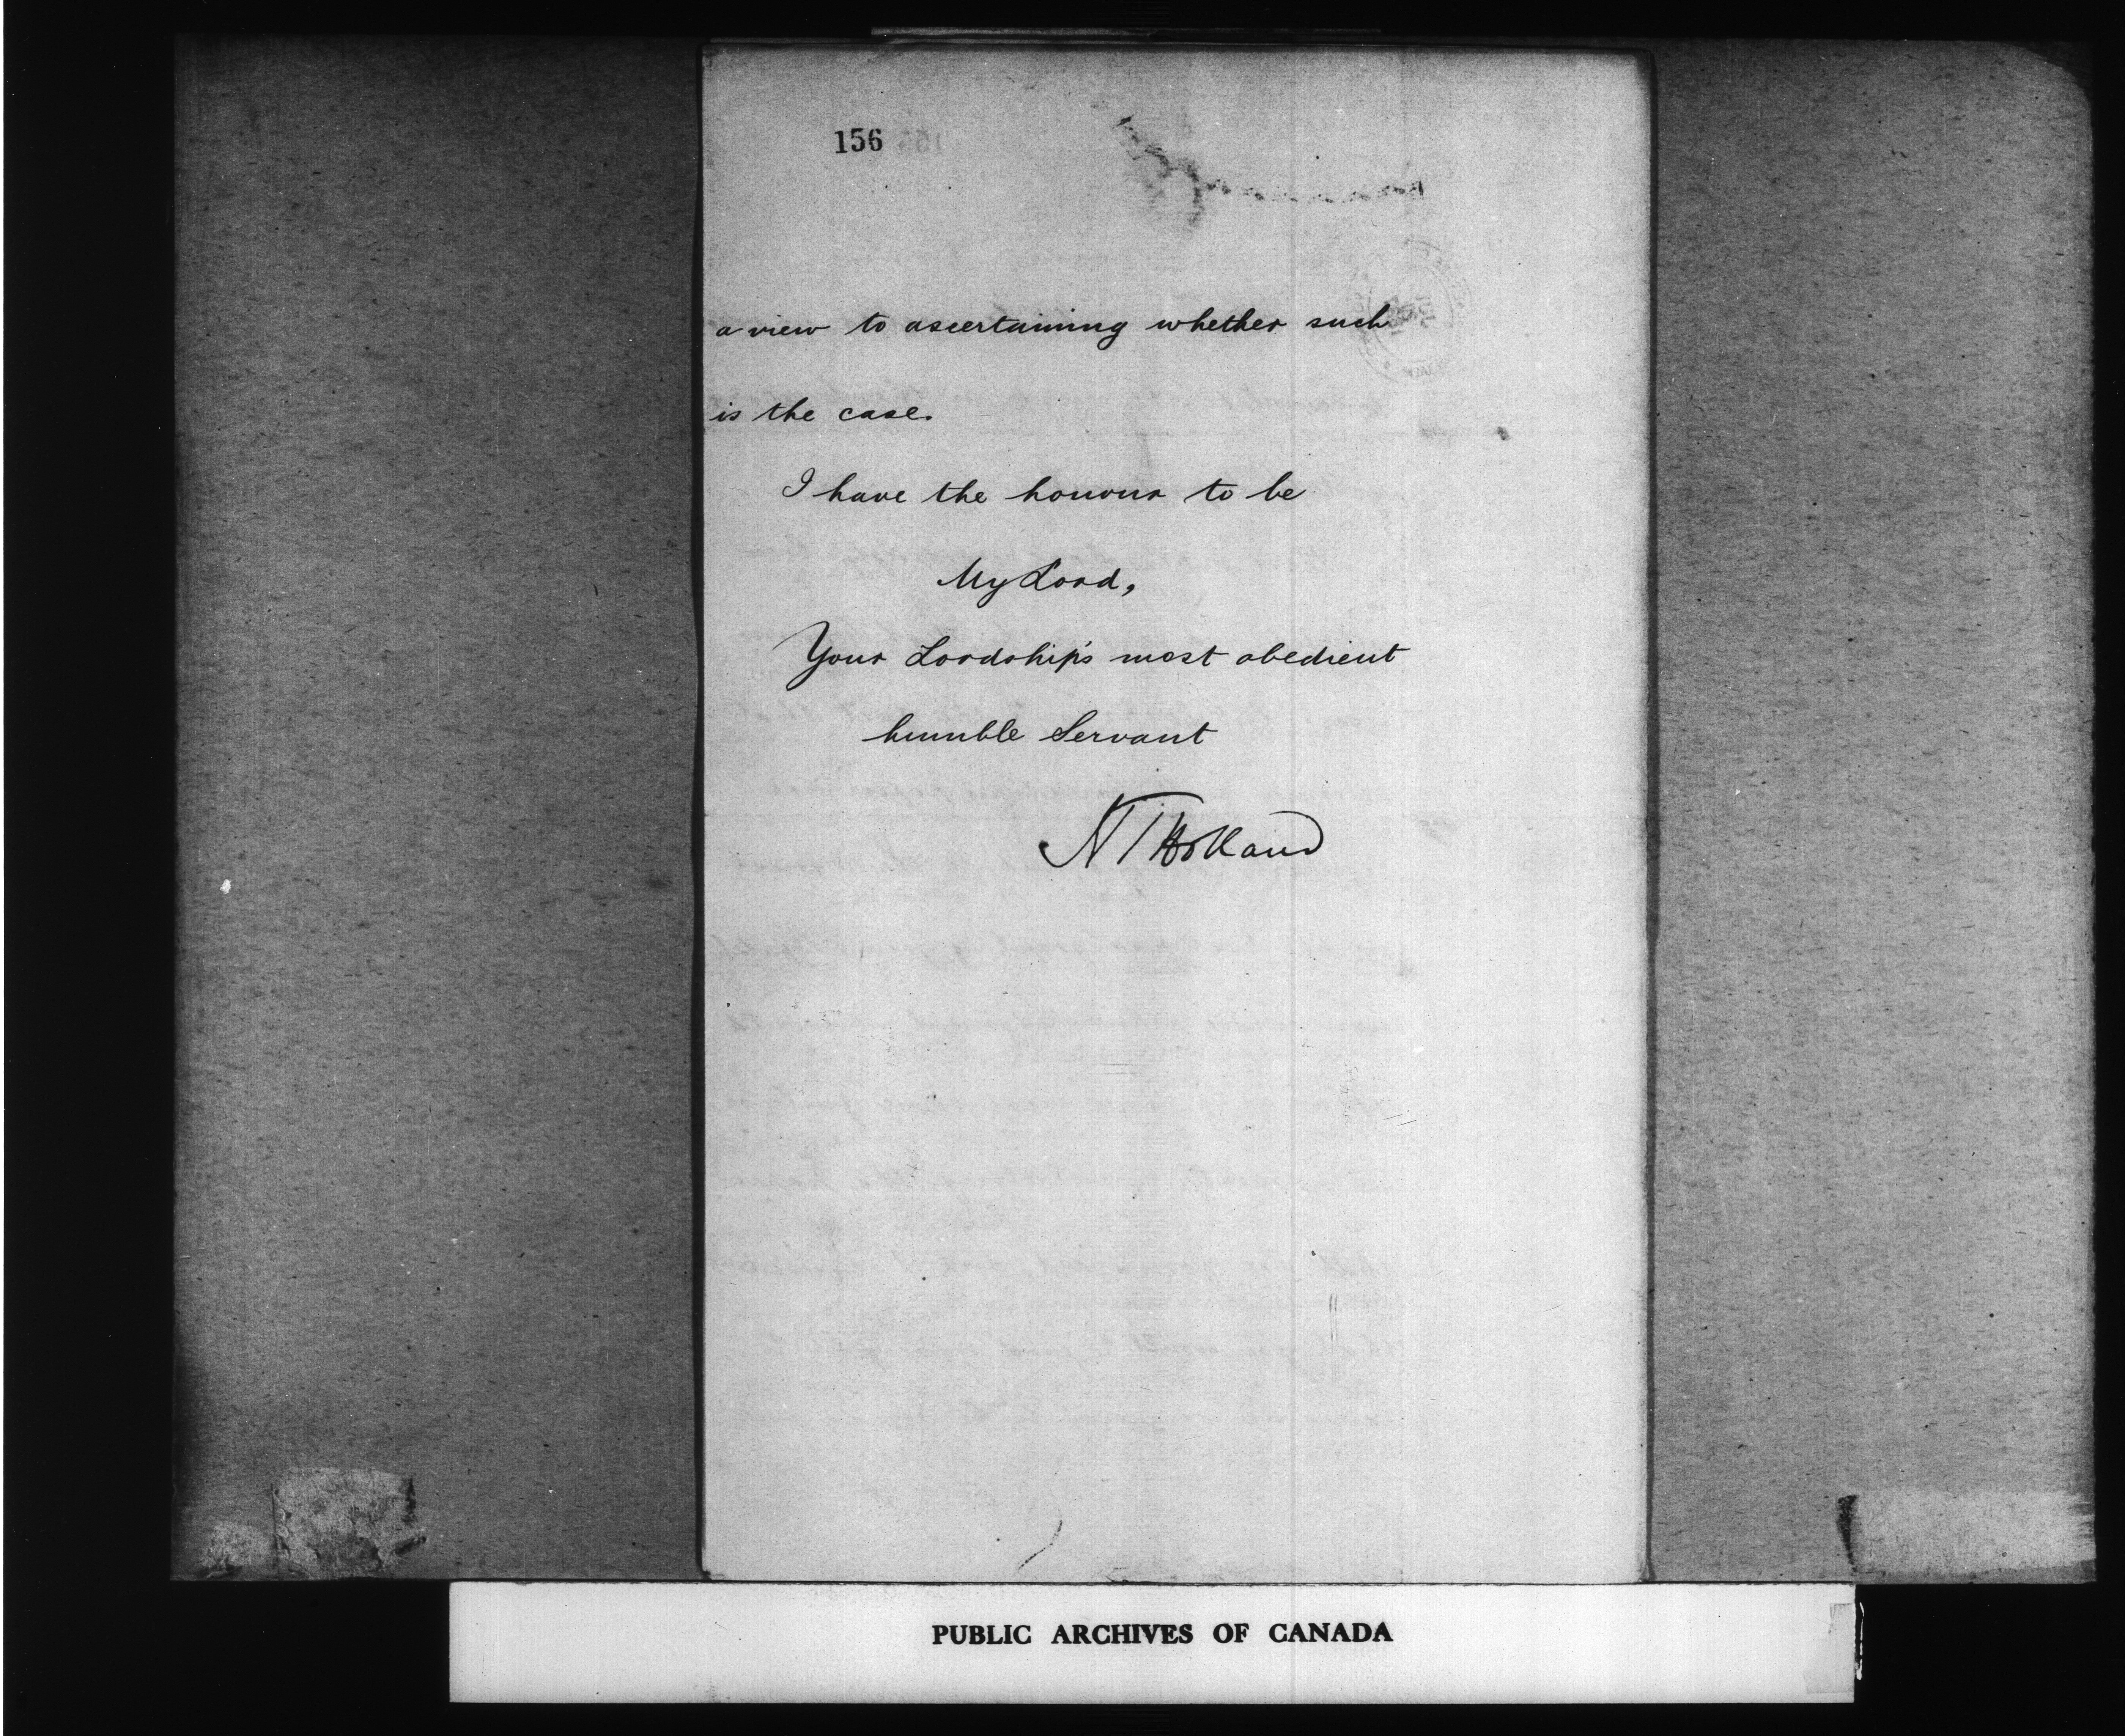 156
a view to ascertaining whether such
is the case.
I have the honour to be
My Lord,
Your Lordship's most obedient
humble Servant
HTHolland
PUBLIC ARCHIVES OF CANADA